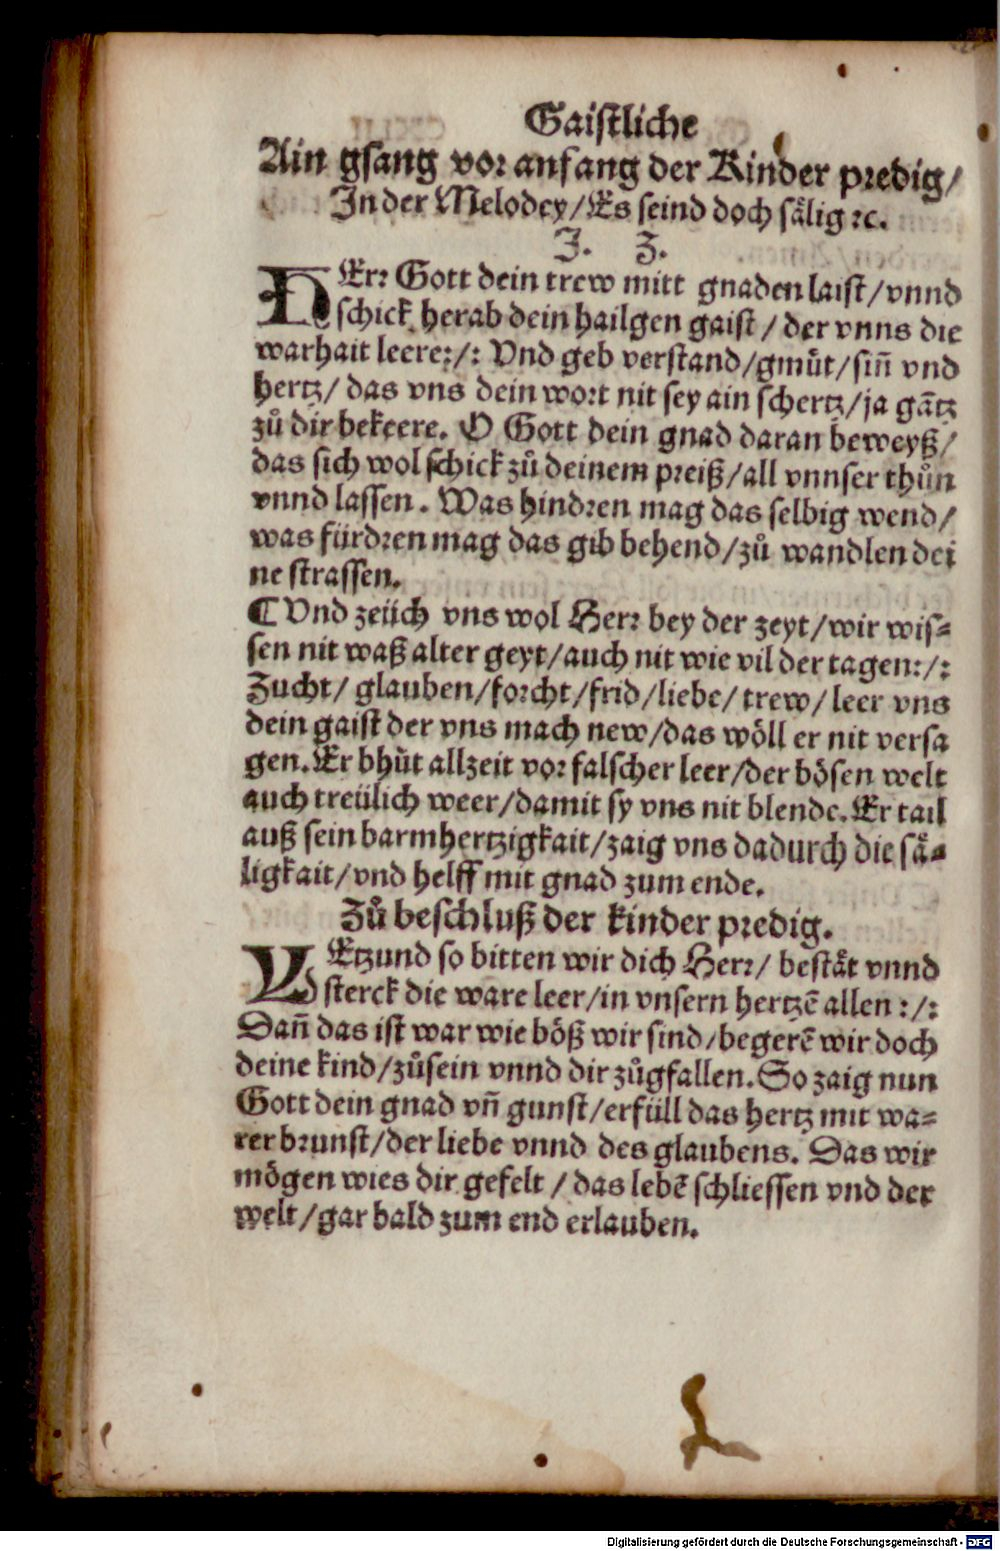 Gaistliche
Ain gsang vor anfang der Kinder predig/
In der Melodey/Es seind doch sälig ꝛc.
J. Z.
HErr Gott dein trew mitt gnaden laist/vnnd
schick herab dein hailgen gaist/der vnns die
warhait leere:/: Vnd geb verstand/gmuͤt/sin̄ vnd
hertz/das vns dein wort nit sey ain schertz/ja gātz
zuͦ dir bekeere. O Gott dein gnad daran beweyß/
das sich wol schick zuͦ deinem preiß/all vnnser thuͦn
vnnd lassen. Was hindren mag das selbig wend/
was fürdren mag das gib behend/zuͦ wandlen dei
ne strassen.
¶ Vnd zeüch vns wol Herr bey der zeyt/wir wis⸗
sen nit waß alter geyt/auch nit wie vil der tagen:/:
Zucht/glauben/forcht/frid/liebe/trew/leer vns
dein gaist der vns mach new/das wöll er nit versa
gen. Er bhuͤt allzeit vor falscher leer/der bösen welt
auch treülich weer/damit sy vns nit blende. Er tail
auß sein barmhertzigkait/zaig vns dadurch die sä⸗
ligkait/vnd helff mit gnad zum ende.
Zuͦ beschluß der kinder predig.
YEtzund so bitten wir dich Herr/bestät vnnd
sterck die ware leer/in vnsern hertzē allen:/:
Dan̄ das ist war wie böß wir sind/begerē wir doch
deine kind/zuͦsein vnnd dir zuͦgfallen. So zaig nun
Gott dein gnad vn̄ gunst/erfüll das hertz mit wa⸗
rer brunst/der liebe vnnd des glaubens. Das wir
mögen wies dir gefelt/das lebē schliessen vnd der
welt/gar bald zum end erlauben.
Digitalisierung gefördert durch die Deutsche Forschungsgemeinschaft - DFG